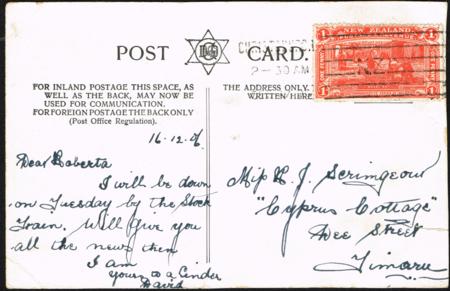 POST CARD.
NEW ZEALAND
1 1
2 - 30 AM
FOR INLAND POSTAGE THIS SPACE, AS
WELL AS THE BACK, MAY NOW BE
USED FOR COMMUNICATION.
FOR FOREIGN POSTAGE THE BACK ONLY
(Post Office Regulation).
THE ADDRESS ONLY
WRITTEN HERE
16-12-06
Dear Roberta
I will be down
on Tuesday by the Stock
Train. Will give you
all the news then
I am
yours to a Cinder
David
Miss H. J. Scrimgeour
"Cyprus Cottage"
Dee Street
Timaru